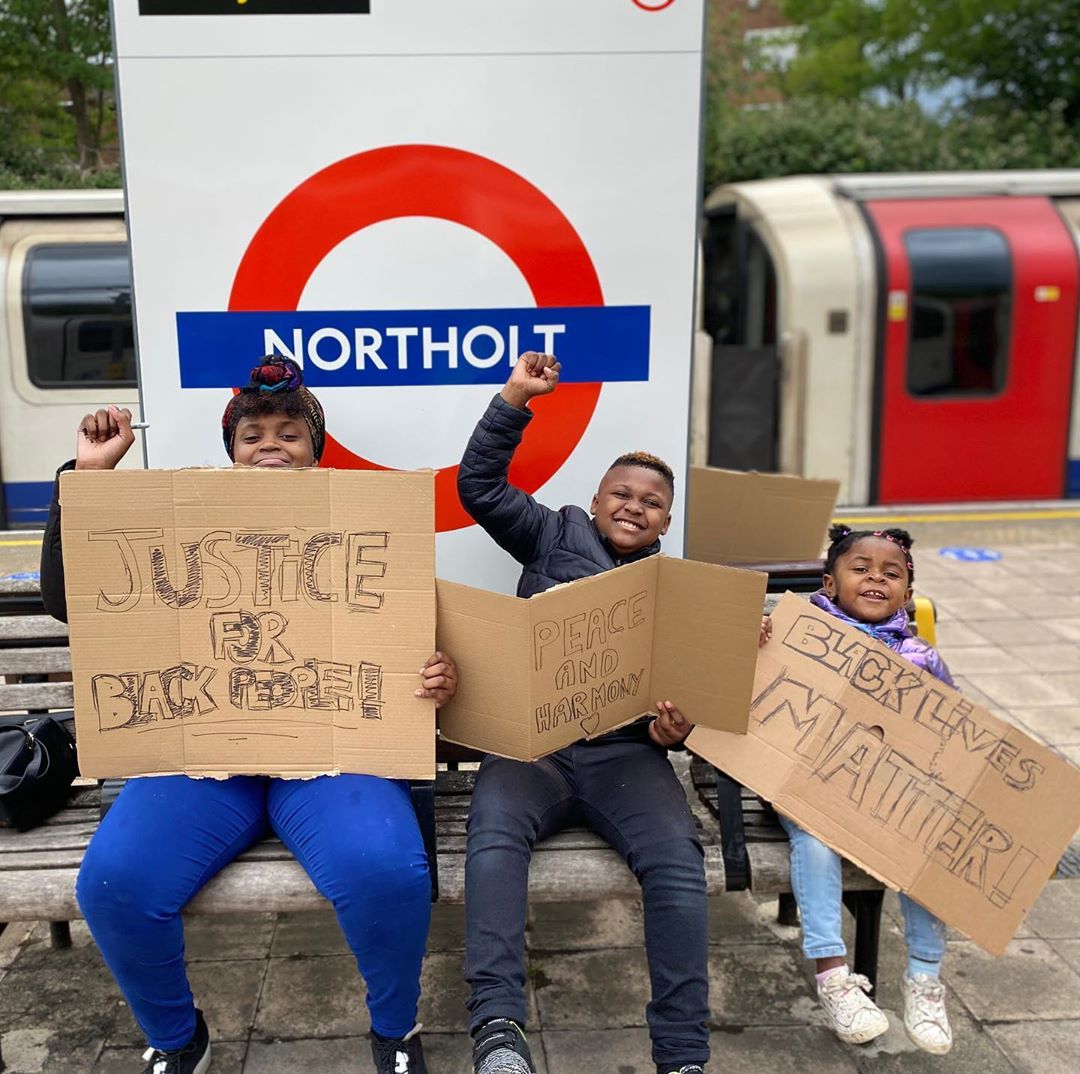 NORTHOLT
JUSTiCE
FOR
BLACK PEOPLE!
PEACE
AND
HARMONY
BLACK LiVES
MATTER!